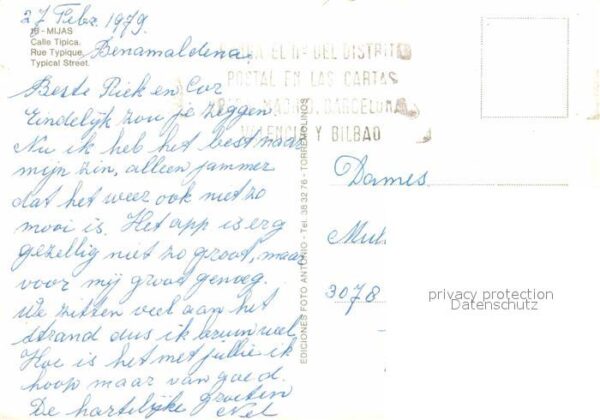 27 Febr. 1979.
16 - MIJAS
Calle Típica.
Rue Typique.
Typical Street.
Benamaldena.
Beste Riek en Cor
Eindelijk zou je zeggen.
Nu ik heb het best naar
mijn zin, alleen jammer
dat het weer ook niet zo
mooi is. Het app is erg
gezellig niet zo groot, maar
voor mij groot genoeg.
We zitten veel aan het
strand dus ik bruin wel
Hoe is het met jullie ik
hoop maar van goed.
De hartelijke groeten
Nel
EDICIONES FOTO ANTONIO - Tel. 38 32 76 - TORREMOLINOS
EL Nº DEL DISTRITO
POSTAL EN LAS CARTAS
MADRID, BARCELONA
VALENCIA Y BILBAO
Dames
3078
privacy protection
Datenschutz